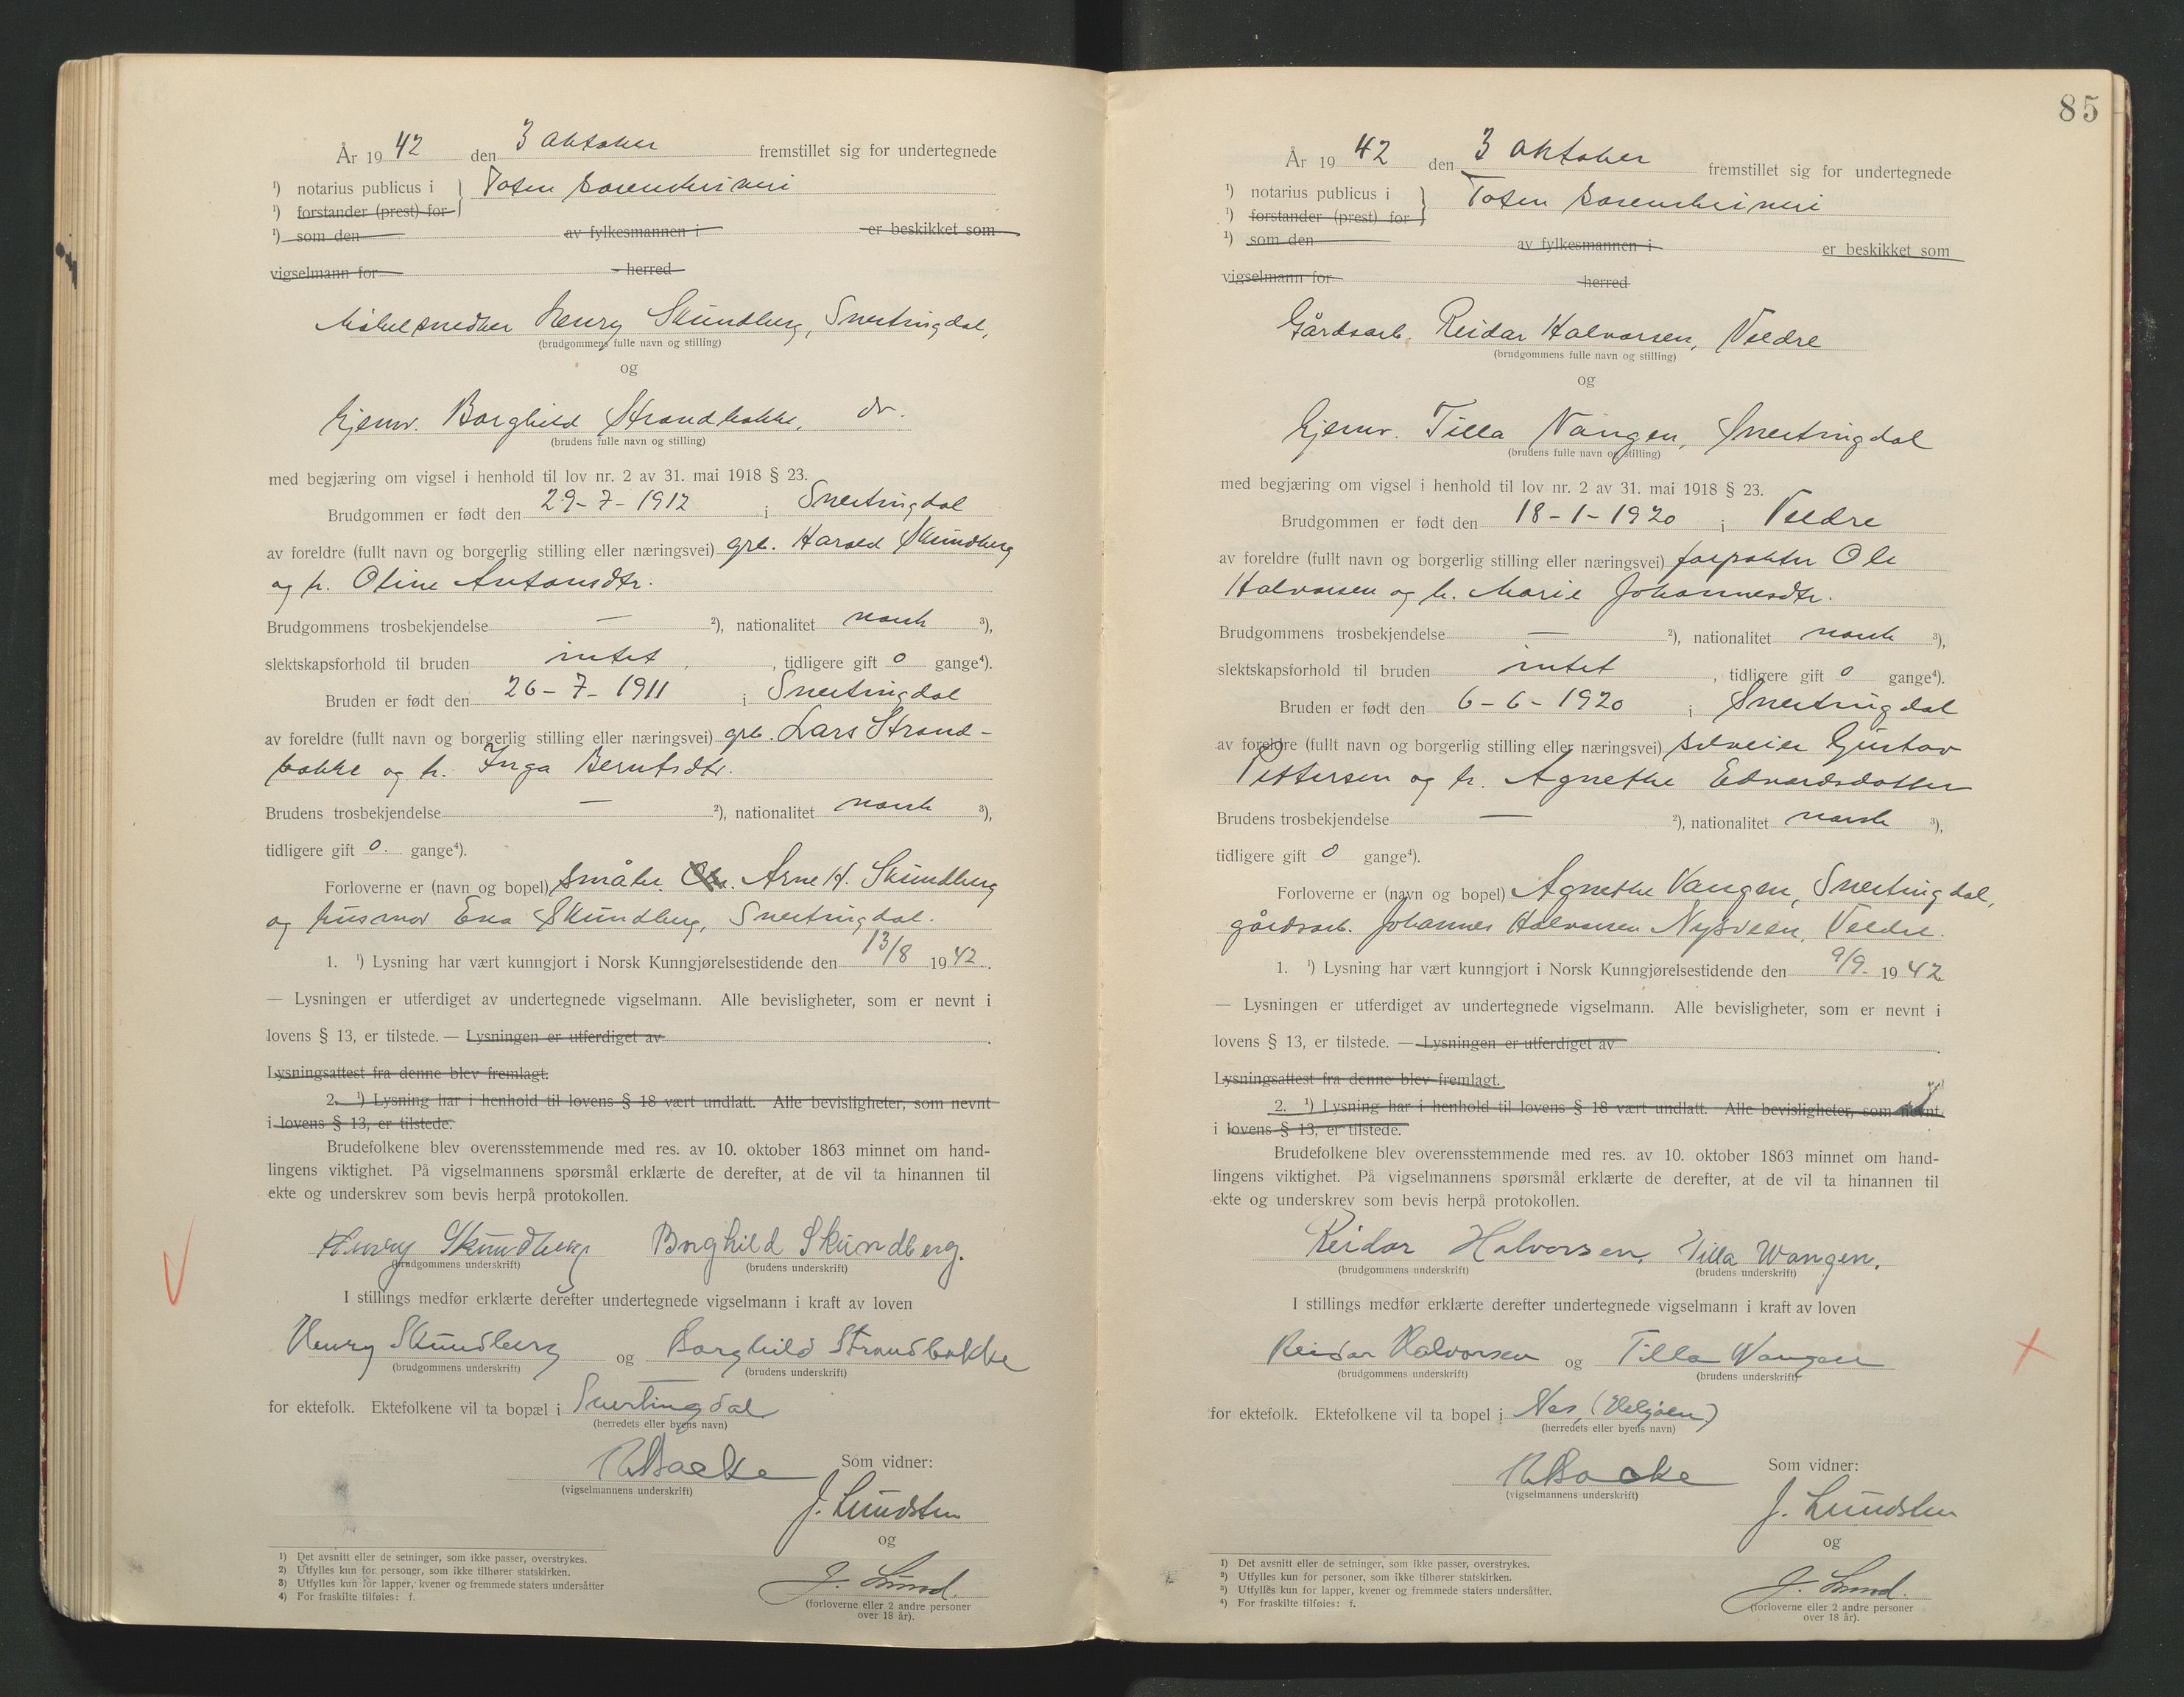 År 19 42 den 3 oktober fremstillet sig for undertegnede
¹) notarius publicus i } Toten sorenskriveri
¹) forstander (prest) for
¹) som den av fylkesmannen i er beskikket som
vigselmann for herred
Møbelsnedker Henry Skundberg, Snertingdal,
(brudgommens fulle navn og stilling)
og
hjemv. Borghild Strandbakke, do.
(brudens fulle navn og stilling)
med begjæring om vigsel i henhold til lov nr. 2 av 31. mai 1918 § 23.
Brudgommen er født den 29-7-1912 i Snertingdal
av foreldre (fullt navn og borgerlig stilling eller næringsvei) grb. Harald Skundberg
og h. Oline Antonsdtr.
Brudgommens trosbekjendelse — ²), nationalitet norsk ³),
slektskapsforhold til bruden intet , tidligere gift 0 gange⁴).
Bruden er født den 26-7-1911 i Snertingdal
av foreldre (fullt navn og borgerlig stilling eller næringsvei) grb. Lars Strand-
bakke og h. Inga Berntsdtr.
Brudens trosbekjendelse — ²), nationalitet norsk ³),
tidligere gift 0. gange⁴).
Forloverne er (navn og bopel) småbr. Arne H. Skundberg
og husmor Eva Skundberg, Snertingdal.
1. ¹) Lysning har vært kunngjort i Norsk Kunngjørelsestidende den 13/8 1942.
— Lysningen er utferdiget av undertegnede vigselmann. Alle bevisligheter, som er nevnt i
lovens § 13, er tilstede. — Lysningen er utferdiget av
Lysningsattest fra denne blev fremlagt.
2. ¹) Lysning har i henhold til lovens § 18 vært undlatt. Alle bevisligheter, som nevnt
i lovens § 13, er tilstede.
Brudefolkene blev overensstemmende med res. av 10. oktober 1863 minnet om hand-
lingens viktighet. På vigselmannens spørsmål erklærte de derefter, at de vil ta hinannen til
ekte og underskrev som bevis herpå protokollen.
Henry Skundberg Borghild Skundberg.
(brudgommens underskrift) (brudens underskrift)
I stillings medfør erklærte derefter undertegnede vigselmann i kraft av loven
Henry Skundberg og Borghild Strandbakke
(brudgommens underskrift) (brudens underskrift)
for ektefolk. Ektefolkene vil ta bopæl i Snertingdal
(herredets eller byens navn)
Som vidner:
(vigselmannens underskrift)
J. Lundsten
og
J. Lund.
(forloverne eller 2 andre personer
over 18 år).
1) Det avsnitt eller de setninger, som ikke passer, overstrykes.
2) Utfylles kun for personer, som ikke tilhører statskirken.
3) Utfylles kun for lapper, kvener og fremmede staters undersåtter
4) For fraskilte tilføies: f.
85
År 19 42 den 3 oktober fremstillet sig for undertegnede
¹) notarius publicus i } Toten sorenskriveri
¹) forstander (prest) for
¹) som den av fylkesmannen i er beskikket som
vigselmann for herred
Gårdsarb. Reidar Halvorsen, Veldre
(brudgommens fulle navn og stilling)
og
hjemv. Tilla Vangen, Snertingdal
(brudens fulle navn og stilling)
med begjæring om vigsel i henhold til lov nr. 2 av 31. mai 1918 § 23.
Brudgommen er født den 18-1-1920 i Veldre
av foreldre (fullt navn og borgerlig stilling eller næringsvei) forpakter Ole
Halvorsen og h. Marie Johannesdtr.
Brudgommens trosbekjendelse — ²), nationalitet norsk ³),
slektskapsforhold til bruden intet , tidligere gift 0 gange⁴).
Bruden er født den 6-6-1920 i Snertingdal
av foreldre (fullt navn og borgerlig stilling eller næringsvei) selveier Gustav
Pettersen og h. Agnethe Edvardsdatter
Brudens trosbekjendelse — ²), nationalitet norsk ³),
tidligere gift 0 gange⁴).
Forloverne er (navn og bopel) Agnethe Vangen, Snertingdal,
gårdsarb. Johannes Halvorsen Nysveen, Veldre.
1. ¹) Lysning har vært kunngjort i Norsk Kunngjørelsestidende den 9/9. 1942
— Lysningen er utferdiget av undertegnede vigselmann. Alle bevisligheter, som er nevnt i
lovens § 13, er tilstede. — Lysningen er utferdiget av
Lysningsattest fra denne blev fremlagt.
2. ¹) Lysning har i henhold til lovens § 18 vært undlatt. Alle bevisligheter, som nevnt
i lovens § 13, er tilstede.
Brudefolkene blev overensstemmende med res. av 10. oktober 1863 minnet om hand-
lingens viktighet. På vigselmannens spørsmål erklærte de derefter, at de vil ta hinannen til
ekte og underskrev som bevis herpå protokollen.
Reidar Halvorsen. Tilla Wangen.
(brudgommens underskrift) (brudens underskrift)
I stillings medfør erklærte derefter undertegnede vigselmann i kraft av loven
Reidar Halvorsen og Tilla Vangen
(brudgommens underskrift) (brudens underskrift)
for ektefolk. Ektefolkene vil ta bopel i Nes, (Helgøen)
(herredets eller byens navn)
Som vidner:
(vigselmannens underskrift)
J. Lundsten
og
J. Lund.
(forloverne eller 2 andre personer
over 18 år).
1) Det avsnitt eller de setninger, som ikke passer, overstrykes.
2) Utfylles kun for personer, som ikke tilhører statskirken.
3) Utfylles kun for lapper, kvener og fremmede staters undersåtter.
4) For fraskilte tilføies: f.